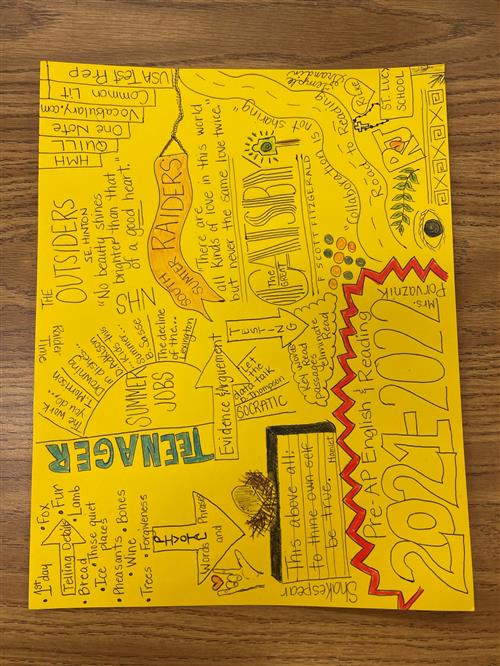 USA Test Prep
Common Lit
Vocabulary.com
One Note
QUILL
HMH
THE
OUTSIDERS
S.E. HINTON
"No beauty shines
brighter than that
of a good heart."
NHS
SOUTH
SUMTER
RAIDERS
"There are
all kinds of love in this world
but never the same love twice."
THE GREAT
GATSBY
F. SCOTT FITZGERALD
"Collaboration is not sharing"
Road to Reading
Temple
Grandin
RILKE
ST. LUCY
SCHOOL
R&J
Raider
Time
The work
you do...
T. Morrison
Drowning
in dishes...
Danielson
Kids this
Summer...
B. Sasse
The decline
of the...
Lexington
SUMMER
JOBS
TEENAGER
Evidence & Argument
TESTING
Key words
Read
passages
Eliminate
Read
Let
the
data talk
D. Thompson
SOCRATIC
• 1st day
• Fox
• Fur
• Lamb
Telling Details
• Bread
• Those quiet
places
• Ice
• Pheasants
• Bones
• Wine
• Trees
• Forgiveness
PIVOT
Words and Phrases
This above all:
to thine own self
be true.
Hamlet
Shakespear
Mrs.
Porvaznik
Pre-AP English & Reading
2021-2022